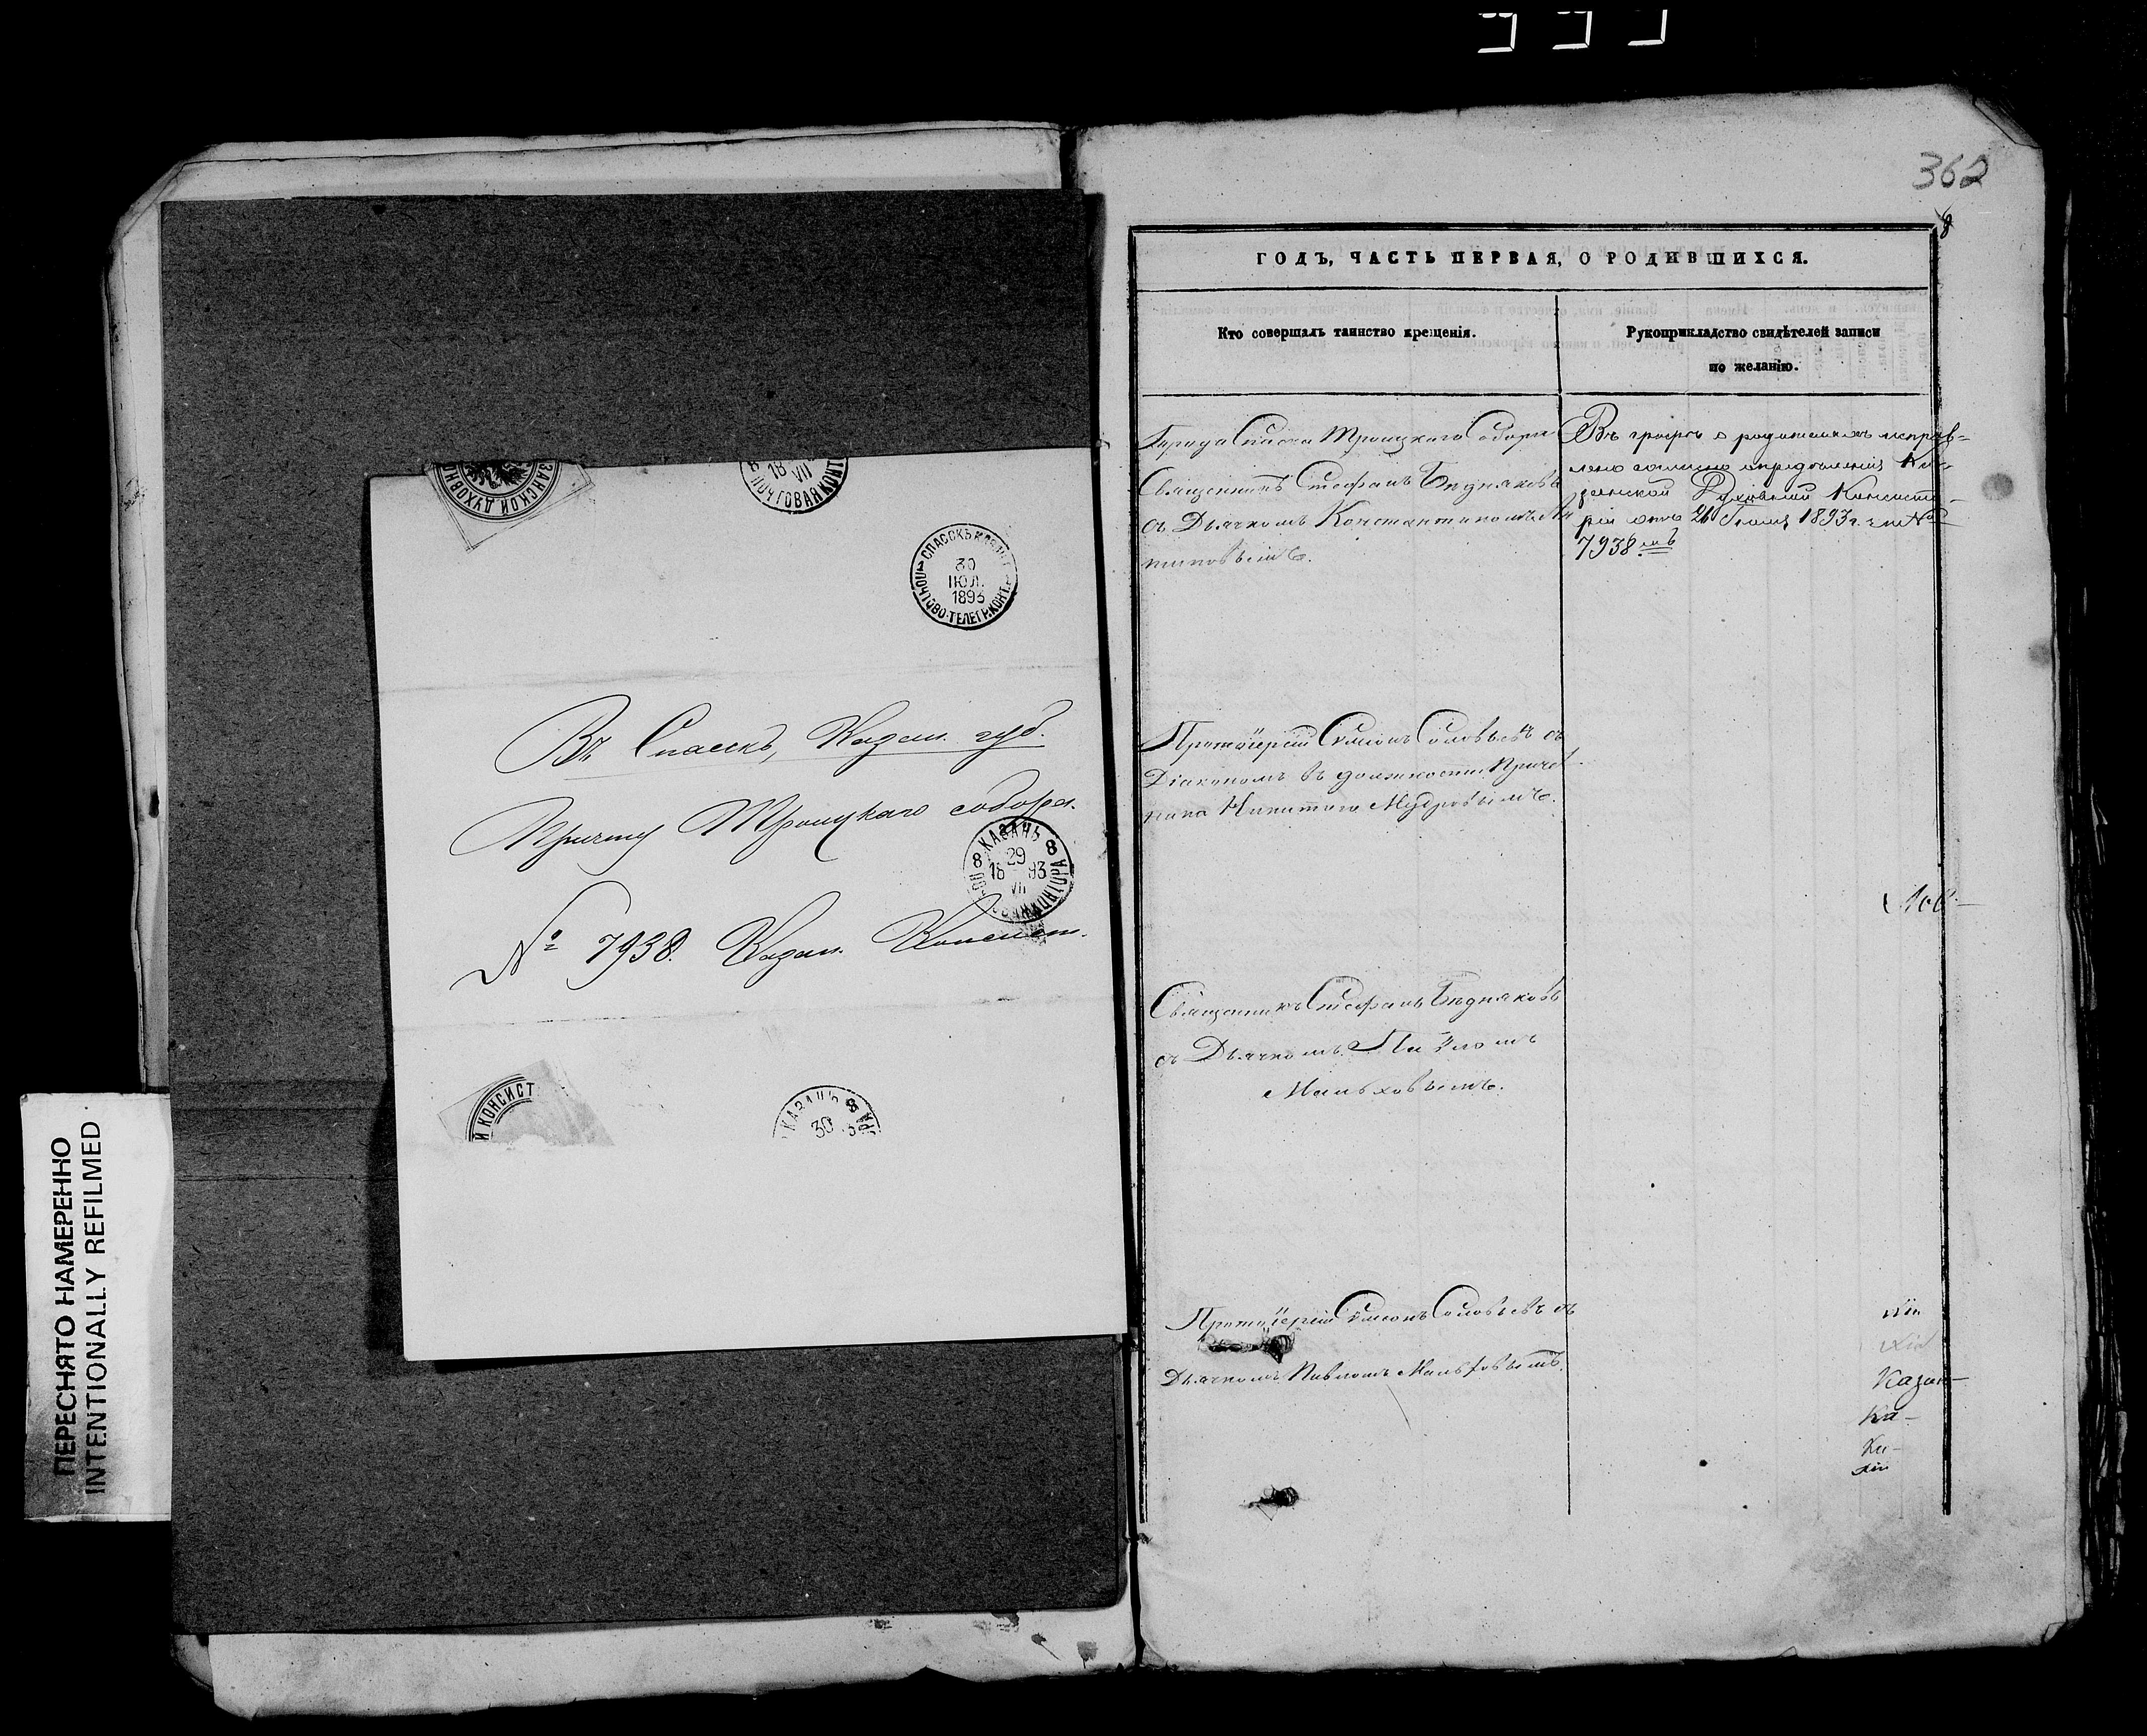 362
8
ПЕРЕСНЯТО НАМЕРЕННО
INTENTIONALLY REFILMED
ЗАНСКОЙ ДУХОВН
18
VII
ПОЧТОВАЯ КОНТ
СПАССКЪ КАЗ
30
ІЮЛ.
1893
ПОЧТОВО-ТЕЛЕГР. КОНТ.
Въ Спасскъ, Казан. губ.
Причту Троицкаго собора.
8 КАЗАНЬ 8
29
18 93
VII
№ 7938. Казан. Консист.
Й КОНСИСТ
КАЗАНЬ 8
30
ГОДЪ, ЧАСТЬ ПЕРВАЯ, О РОДИВШИХСЯ.
Кто совершалъ таинство крещенія.
Рукоприкладство свидѣтелей записи
по желанію.
Города Спасска Троицкаго Собора
Священникъ Стефанъ Бѣдняковъ
съ Дьячкомъ Константиномъ
Въ графѣ о родителяхъ исправ-
лено согласно опредѣленія Ка-
занской Духовной Консисто-
ріи отъ 21 Іюля 1893 г. за №
7938 мъ
Протоіерей Симеонъ Соловьевъ съ
Діакономъ въ должности Причет
ника Никитою Мудровымъ.
Священникъ Стефанъ Бѣдняковъ
съ Дьячкомъ Павломъ
Маньховымъ.
Протоіерей Симеонъ Соловьевъ съ
Дьячкомъ Павломъ Маньховымъ.
Казан-
Ка-
Ка-